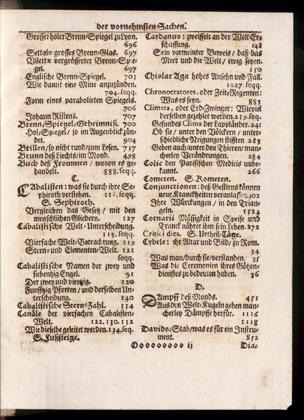 der vornehmsten Sachen.
Grosser holer Brenn-Spiegel zu Lyon.
696
Settala grosses Brenn-Glas. 697
Villette vergrösserter Brenn-Spiegel. 697
Englische Brenn-Spiegel. 701
Wie damit eine Mine anzuzünden.
704. seqq.
Form eines parabolirten Spiegels.
706
Johann Rillens. 707
Brenn-Spiegel-Geheimniß. 709
Hol-Spiegel / so im Augenblick zündet. 904
Brillen / so nicht rund zum Lesen. 981
Brunn deß Liechts / im Mond. 498
Buch des Frommen / worzu es gehandelt. 888. seqq.
C.
Cabalisten: was sie durch ihre Sephiroth verstehen. 116. seqq.
S. Sephiroth.
Vergleichen das Gesetz / mit den menschlichen Gliedern. 127
Cabalistische Welt-Unterscheidung.
131. seqq.
Vierfache Welt-Betrachtung. 119
Stern- und Elementen-Welt. 121
seqq.
Cabalistische Namen der zwey und siebentzig Engel. 91
Der zwey und viertzig. 320
Funfftzig Pforten / und derselben Unterscheidung. 140
Cabalistische Stern-Zahl. 314
Canäle der vierfachen Cabalisten-Welt. 122. 130. 132
Wie dieselbe geleitet werden. 134. seq.
S. Lufsteige.
Cardanus: zweifelt an der Welt Erschaffung. 148
Sein vermeinter Beweis / daß das Meer und die Welt / ewig seyen.
150
Chislar Aga hohes Ansehn und Fall.
1027. seqq.
Chronocratores, oder Zeit-Regenten:
Was es seyen. 883
Climata, oder Erd-Zwinger: Wieviel derselben gezehlet werden. 219. seq.
Gesamt vom Erd-Cörper unterscheiden. 241
Ob sie / unter den Völckern / unterschiedliche Neigungen stifften. 283
Geben auch unter den Thieren mancherley Veränderungen. 284
Colis den Paristschen Medicis unbekannt. 266
Cometen. S. Kometen.
Conjunctionen: deß Gestirns können neue Kranckheiten veranlassen. 302
Ihre Würckungen / in den Triangeln. 1532
Cornarii Mässigkeit in Speise und Tranck nähret ihm sein Leben. 272
Critici dies. S. Urtheil-Täge.
Cybele: ihr Altar und Bild / zu Rom.
34
Was man / durch sie / verstanden. 35
Was die Ceremonien ihres Götzendienstes zu bedeuten haben. 36
D.
Dämpff deß Monds. 451
Aus den Welt-Kugeln gehen mancherley Dämpffe herfür. 1116
1118
Davids-Stab / was es für ein Instrument. 852
ij
Dia-